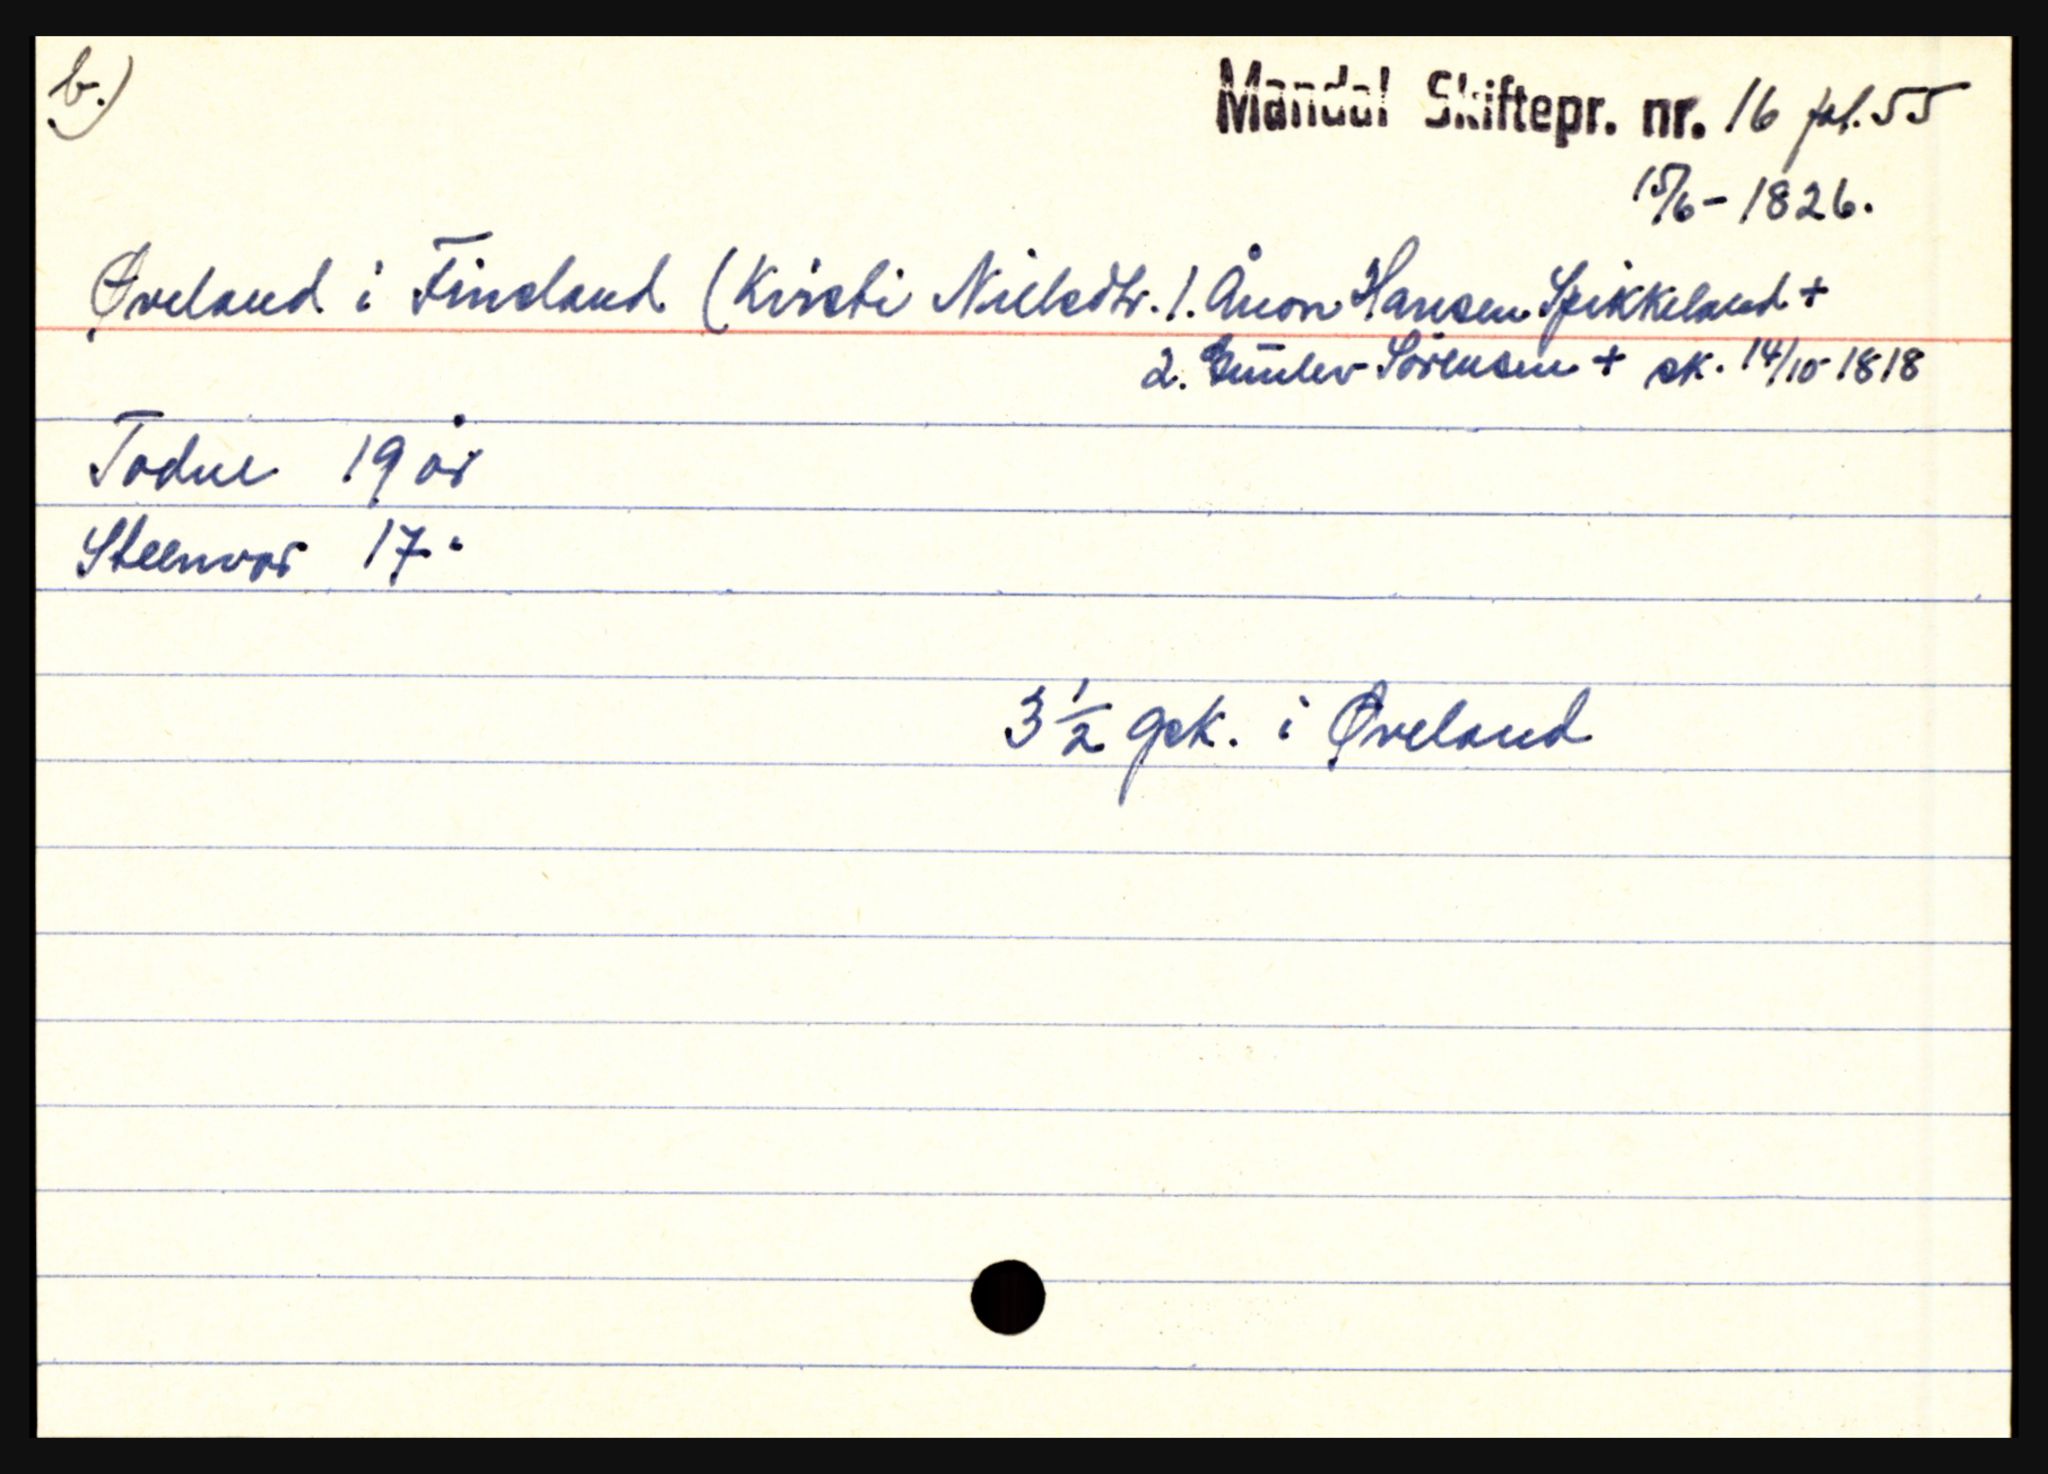 b.)
Mandal Skiftepr. nr. 16 fol. 55
15/6 - 1826.
Øveland i Finsland (Kirsti Nielsdtr. 1. Ånon Hansen Spikkeland +
2. Gunlev Sörensen + sk. 14/10 1818
Todne 19 år
Steenvor 17 "
3 1/2 gsk. i Øveland